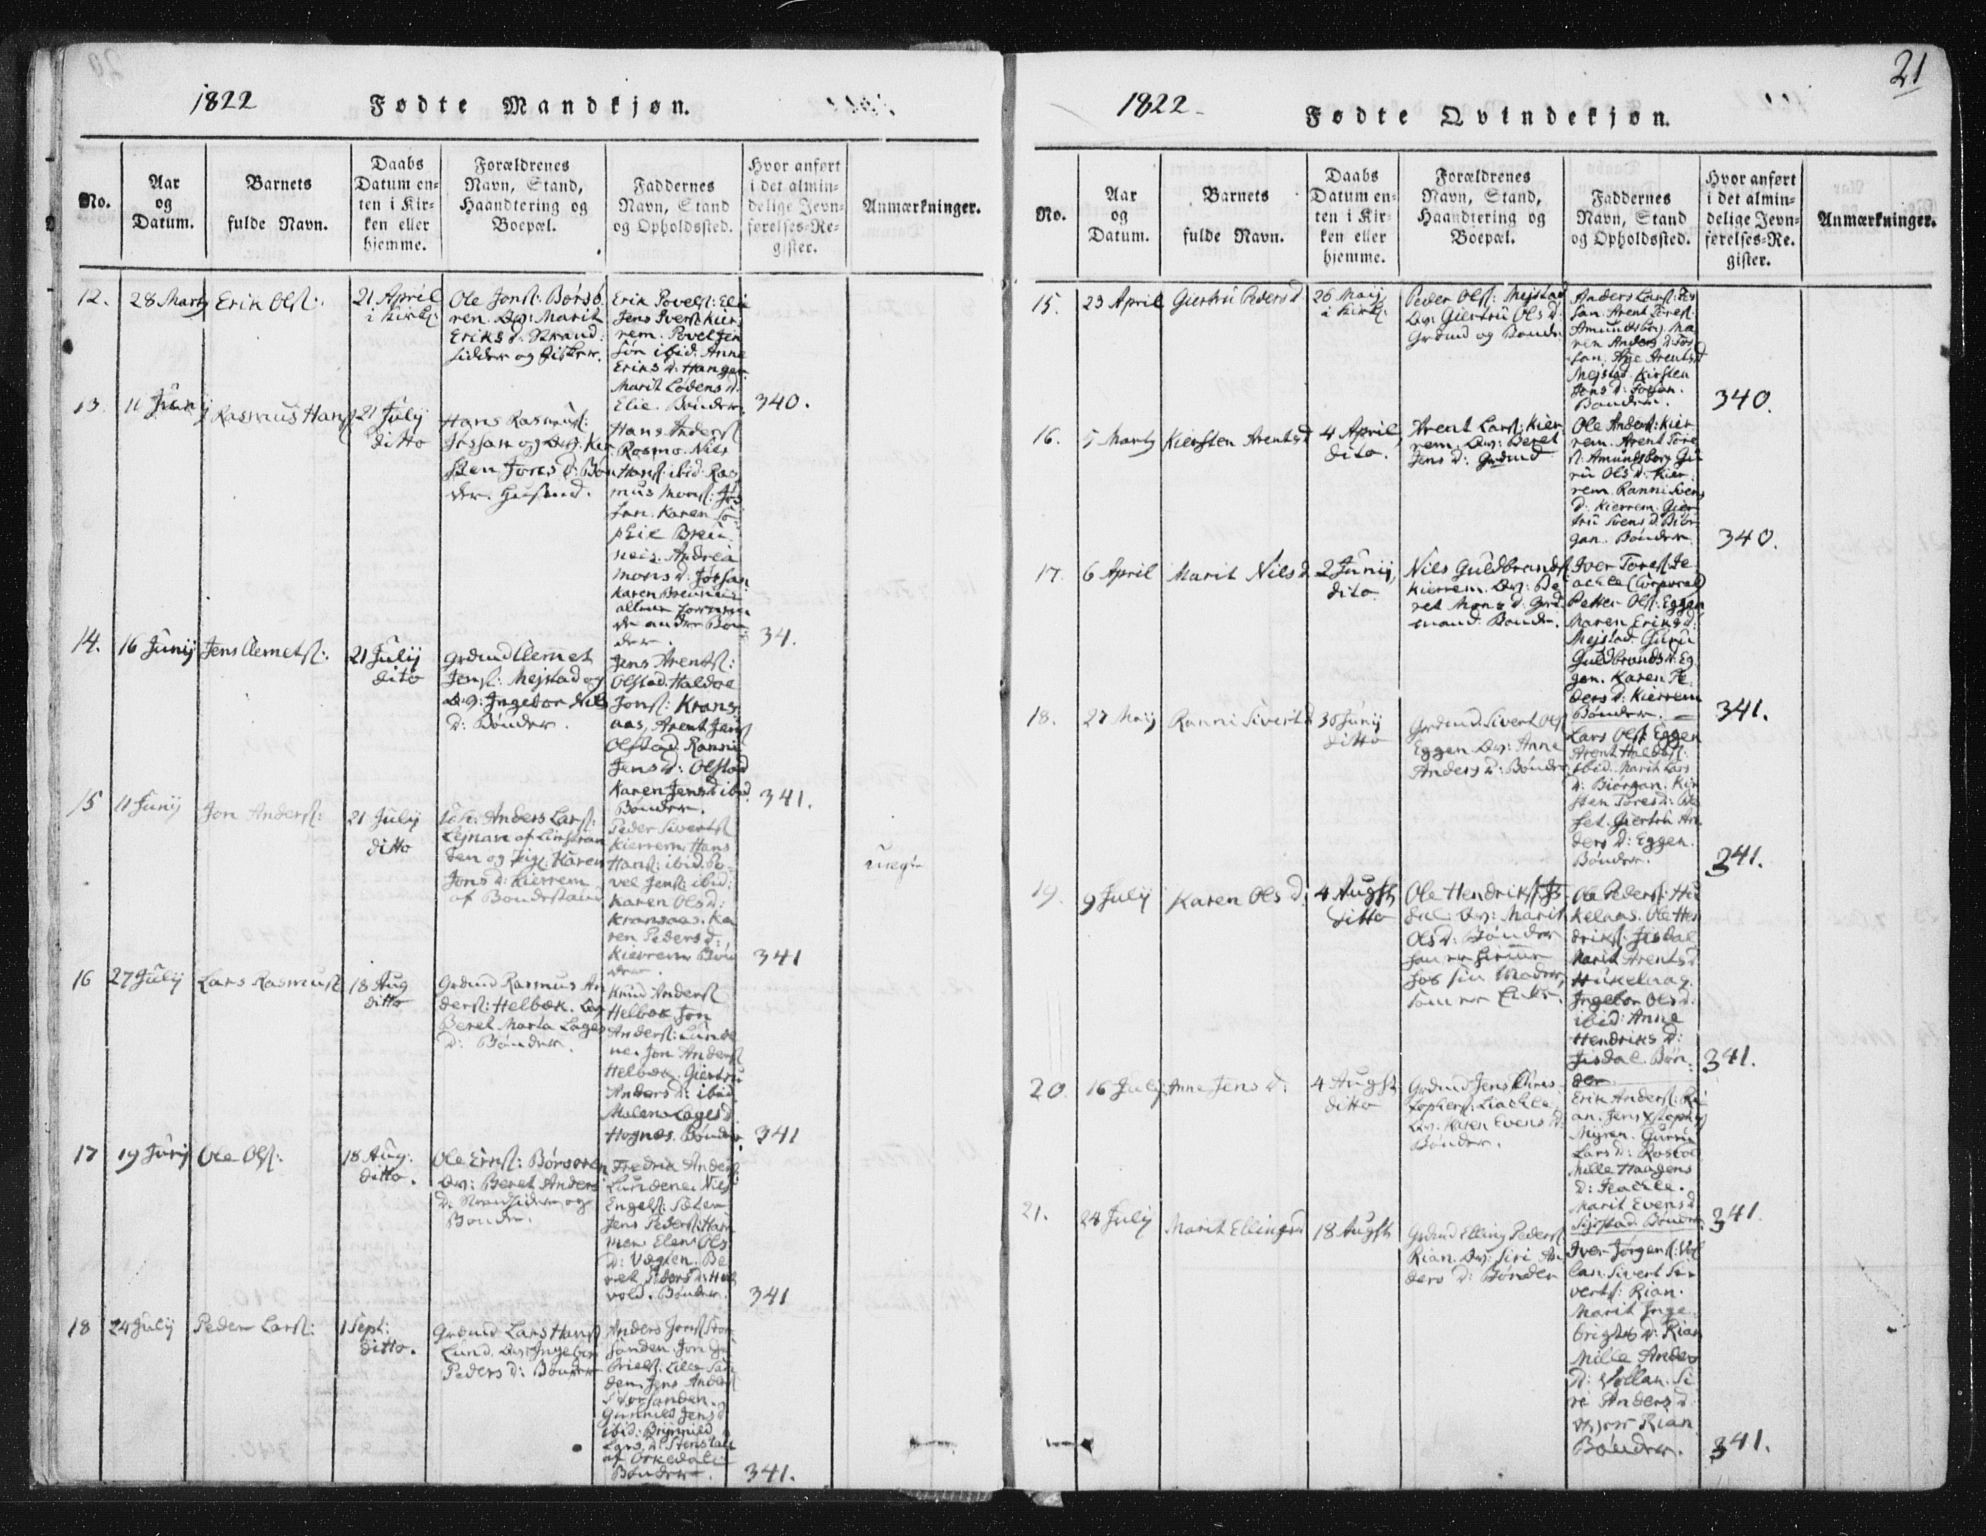 1822
Fødte Mandkjøn.
No.
Aar
og
Datum.
Barnets
fulde Navn.
Daabs
Datum en-
ten i Kir-
ken eller
hjemme.
Forældrenes
Navn, Stand,
Haandtering og
Boepæl.
Faddernes
Navn, Stand
og Opholdssted.
Hvor anført
i det almin-
delige Jevn-
førelses-Re-
gister.
Anmærkninger.
12.
28 Marty
Erik Olss:
21 April
i Kirk:
Ole Jonss: Børsö
ren. Qv: Marit
Eriks d: Strand
sidder og Fisker.
Erik Povelss: Elie
Jens Iverss Kier
rem. Povel Jen
sön ibid. Anne
Eriks d: Hangen
Marit Lodens d.
Elie. Bönder.
13.
11 Junij
Rasmus Hanss
21 July
ditto
Hans Rasmuss:
Jössan og Qv: Kir
sten Tores d: Bön
der. Huusmd.
Hans Anderss
Rosmo. Nils
Hanss: ibid. Ras
mus Monss: Jös
san. Karen So
phie
Andrea
Mons d. Jössan
Karen
alle
de andre Bön
der.
340.
34.
14.
16 Junij
Jens Clemetss:
21 Julij
dito
Grdmd Clemet
Jenss: Mejstad og
Qv: Ingebor Nils
d: Bönder.
Jens Arentss:
Olstad. Haldoe
Jonss: Krans
aas, Arent Jenss
Olstad. Ranni
Jens d: Olstad
Karen Jens d ibid
Bönder.
341.
15
11 Junij
Jon Anderss:
21 July
ditto
Anders Larss:
Lejnan af
og Pige Karen
Jons d: Kierrem
af Bondestand
Peder Sivertss
Kierrem. Hans
Hanss: ibid. Po
vel Jenss: ibid:
Karen Ols d:
Kransaas. Ka
ren Peders d:
Kierrem Bön
der.
341
uægte
16
27 July
Lars Rasmuss
18 Aug
ditto
Grdmd Rasmus An
derss: Helbæk. Qv
Beret Marta Lages
d: Bönder.
Knud Anderss
Helbæk Jon
Anderss: Lunde
ne. Jon Anderss
Helbæk. Giertru
Anders d: ibid
Malene Lages d
Hognæs. Bönder.
341
17
19 Junij
Ole Olss:
18 Aug:
ditto.
Ole Ernss: Börsören
Qv: Beret Anders
d: Strandsidder og
Bonde.
Fredrik Anderss
Lundene. Nils
Engelss: Sæter
Jens Pederss: Ham
mer. Elen Ols
d: Vægten. Be
ret Peders d:
vold. Bönder.
341
18
24 July
Peder Larss:
1 Sept:
ditto.
Grdmd Lars Hanss
Lund. Qv: Ingebor
Peders d: Bönder
Anders Jonss Stor
sanden. Jon Ga
brielss. Lille San
den. Jens Anderss
Storsanden.
Gunnild Jens d
ibid: Brynnild
Lars d: Stenstad
af Orkedalen
Bönder.
341.
21
1822
Fødte Qvindekjøn.
No.
Aar
og
Datum.
Barnets
fulde Navn.
Daabs
Datum en-
ten i Kir-
ken eller
hjemme.
Forældrenes
Navn, Stand,
Haandtering og
Boepæl.
Faddernes
Navn, Stand
og Opholdssted.
Hvor anført
i det almin-
delige Jevn-
førelses-Re.
gister.
Anmærkninger.
15.
23 April
Giertru Peders d
26 Maij
i Kirk:
Peder Olss: Mejstad
Qv: Giertru Ols d:
Grdmd og Bonde.
Anders Larss: Jös
san. Arent Toress:
Amundsborg. Ma
ren Anders d. Jös
san. Arents d
Mejstad. Kirsten
Jens d: Jössan.
Bönder.
340.
16.
5 Marty
Kiersten Arents d
4 April
dito.
Arent Larss: Kier
rem. Qv: Beret
Jens d: Grdmd
Ole Anderss: Kier
rem. Arent Tore
s: Amundsborg Gu
ru Ols d: Kier
rem. Ranni Svens
d. Kierrem. Gier
tru Svens d. Biör
gan. Bönder.
340.
17.
6 April
Marit Nils d
2 Junij
dito
Nils Guldbrandss
Kierrem. Qv: Be
ret Mons d: Grd
mand. Bonde.
Iver Toress Je
achle (Corporal)
Petter Olss: Eggen
Maren Eriks d:
Mejstad. Guru
Guldbrands d. Eg
gen. Karen Pe
ders d: Kierrem
Bönder.
341.
18.
27 Maij
Ranni Sivert d
30 Junij
ditto
Grdmd Sivert Olss
Eggen. Qv: Anne
Anders d: Bönder
Lars Olss Eggen
Arent Haldoss:
ibid. Marit Lars
d: Biörgan. Kir
sten Tores d:
Giertru An
ders d: Eggen.
Bönder.
341.
19.
9 July
Karen Ols d:
4 Augst
ditto
Ole Hendrikss Jis
dal: Qv: Marit
Ols d: Bönder
han er hiemme
hos sin Moder,
som er Enke.
Ole Pederss: Hu
kelaas. Ole Hen
drikss: Jisdal
Marit Arents d
Hukelaag.
Ingebor Ols d:
ibid: Anne
Hendriks d:
Jisdal. Bön:
der
341.
20.
16 July
Anne Jens d:
4 Augst
ditto
Grdmd Jens Chris
tophers: Liachle,
Qv: Karen Evens d:
Bönder.
Erik Anderss: Ri
an. Jens Xstophss
Myren. Gurru
Lars d: Rostöl
Mille Haagens
d: Jeachle.
Marit Evens d
Sjöstad. Bönder
341.
21.
24 July
Marit Ellings d
18 Augst
Grdmd Elling Pederss
Rian. Qv: Siri An
ders d: Bönder
Iver Jörgenss: Vol
lan. Sivert Si
vertss: Rian.
Marit Inge
brigts d: Rian
Mille Anders
d: Vollan. Si
ri Anders d.
Rian
Bönder.
341.